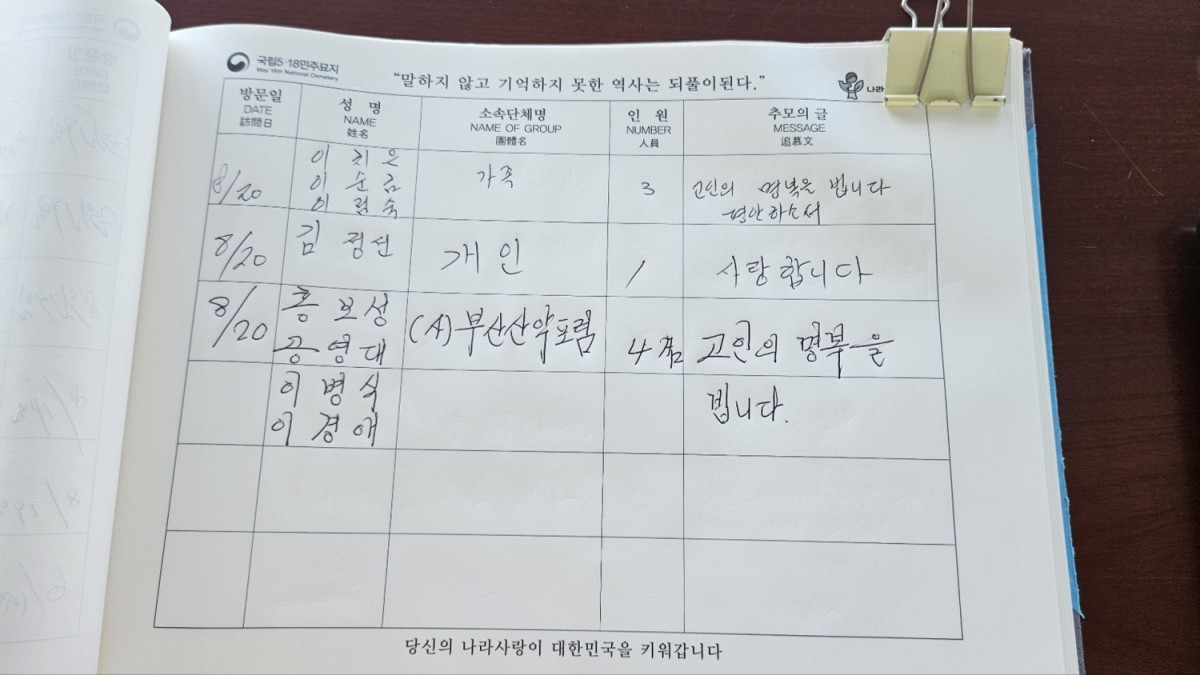 국립5·18민주묘지
May 18th National Cemetery
"말하지 않고 기억하지 못한 역사는 되풀이된다."
나라
방문일
DATE
訪問日
성 명
NAME
姓名
소속단체명
NAME OF GROUP
團體名
인 원
NUMBER
人員
추모의 글
MESSAGE
追慕文
8/20
이
이 순금
이 림숙
가족
3
고인의 명복을 빕니다
평안하소서
8/20
김 정선
개인
1
사랑합니다
8/20
홍보성
공영대
이병식
이경애
(사)부산산악포럼
4명
고인의 명복을
빕니다.
당신의 나라사랑이 대한민국을 키워갑니다